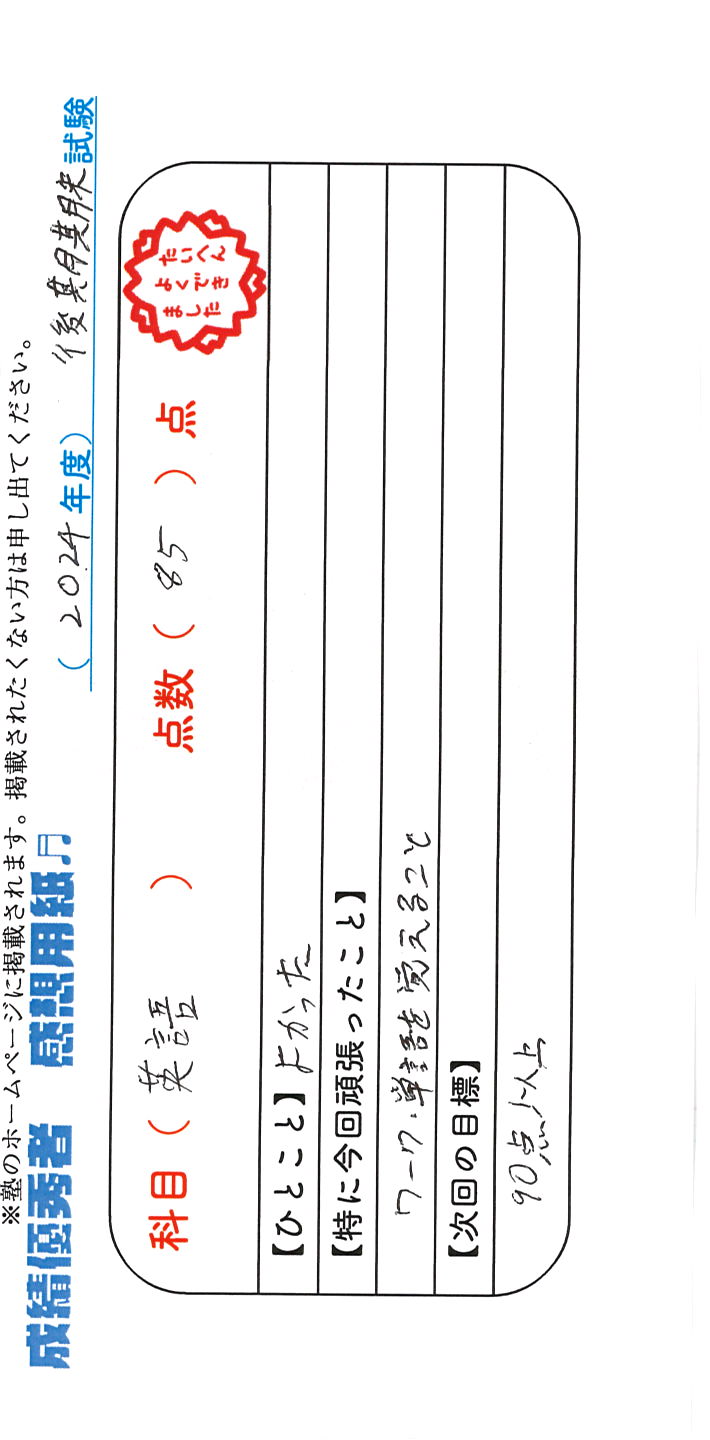 ※塾のホームページに掲載されます。掲載されたくない方は申し出てください。
成績優秀者 感想用紙♫ (2024年度) 後期期末試験
科目(英語) 点数(85)点
たいへん
よくでき
ました
【ひとこと】よかった
【特に今回頑張ったこと】
ワーク・単語を覚えること
【次回の目標】
90点以上